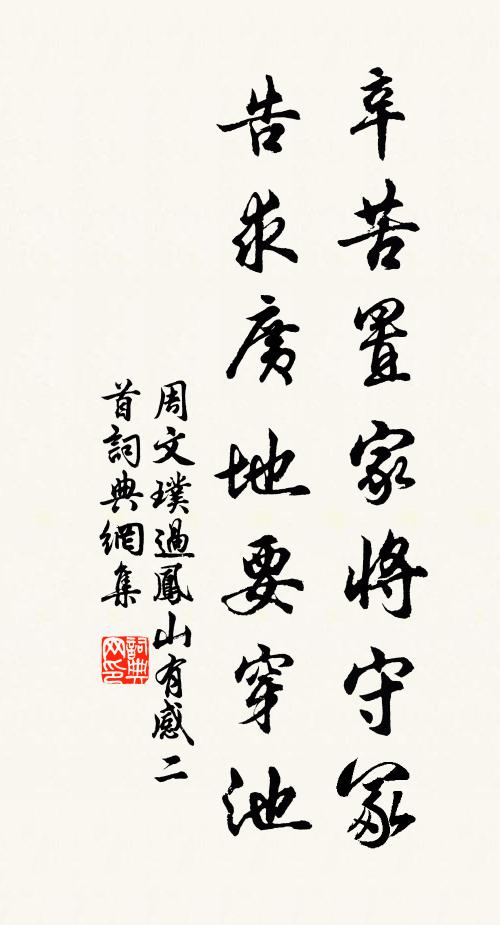 辛苦置家將守冢
告求廣地要穿池
周文璞過鳳山有感二
首詞典網集
詞典
网印